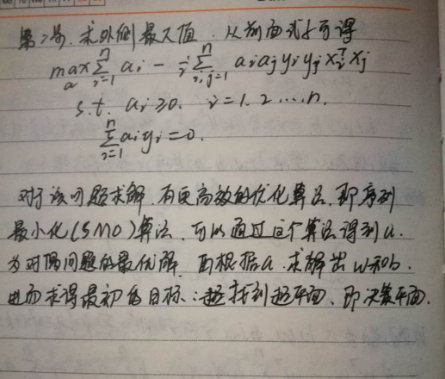 第2步,求外侧最大值,从前面式子可得
max_a Σ_{i=1}^{n} a_i - ½ Σ_{i,j=1}^{n} a_i a_j y_i y_j x_i^T x_j
s.t. a_i≥0, i=1,2…,n.
Σ_{i=1}^{n} a_i y_i=0.
对于该问题求解,有更高效的优化算法,即序列
最小化(SMO)算法,可以通过这个算法得到a.
为对偶问题的最优解,而根据a,求解出w和b.
进而求得最初的目标:找到超平面,即决策平面.